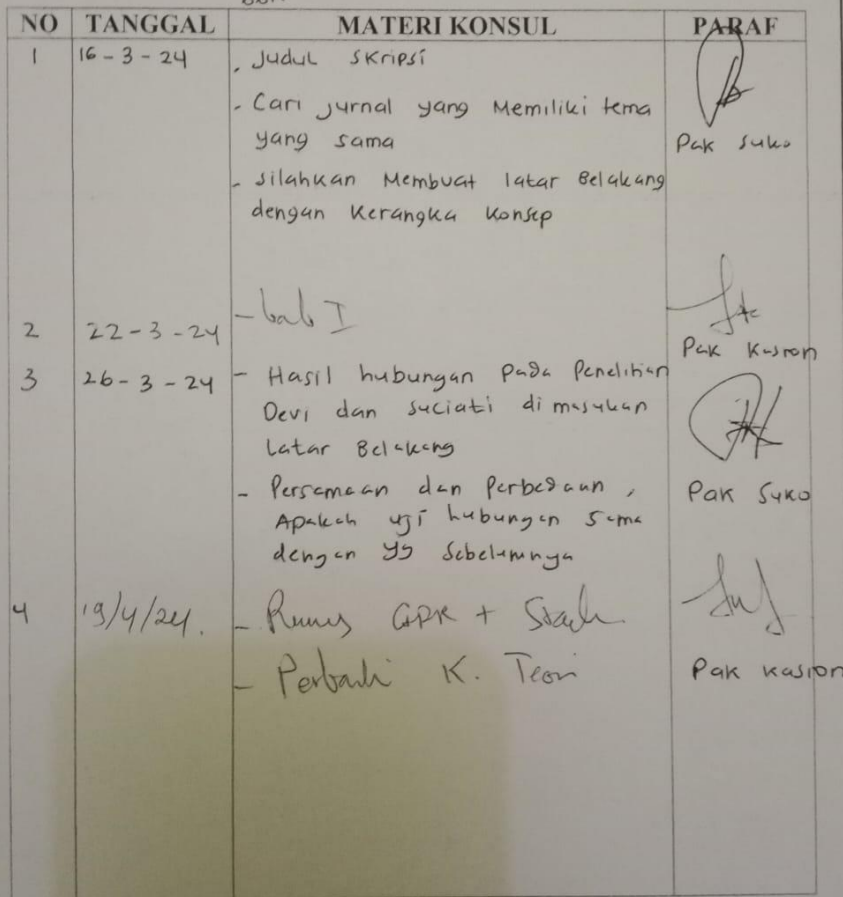 NO TANGGAL MATERI KONSUL PARAF
1 16-3-24 . Judul Skripsi
- Cari jurnal yang Memiliki tema
yang sama
Pak Suko
- Silahkan Membuat latar Belakang
dengan Kerangka Konsep
2 22-3-24 - bab I
Pak Kasron
3 26-3-24 - Hasil hubungan pada Penelitian
Devi dan Suciati di masukan
Latar Belakang
- Persamaan dan Perbedaan,
Pak Suko
Apakah uji hubungan sama
dengan yg Sebelumnya
4 19/4/24. - +
- K. Teori
Pak Kasron